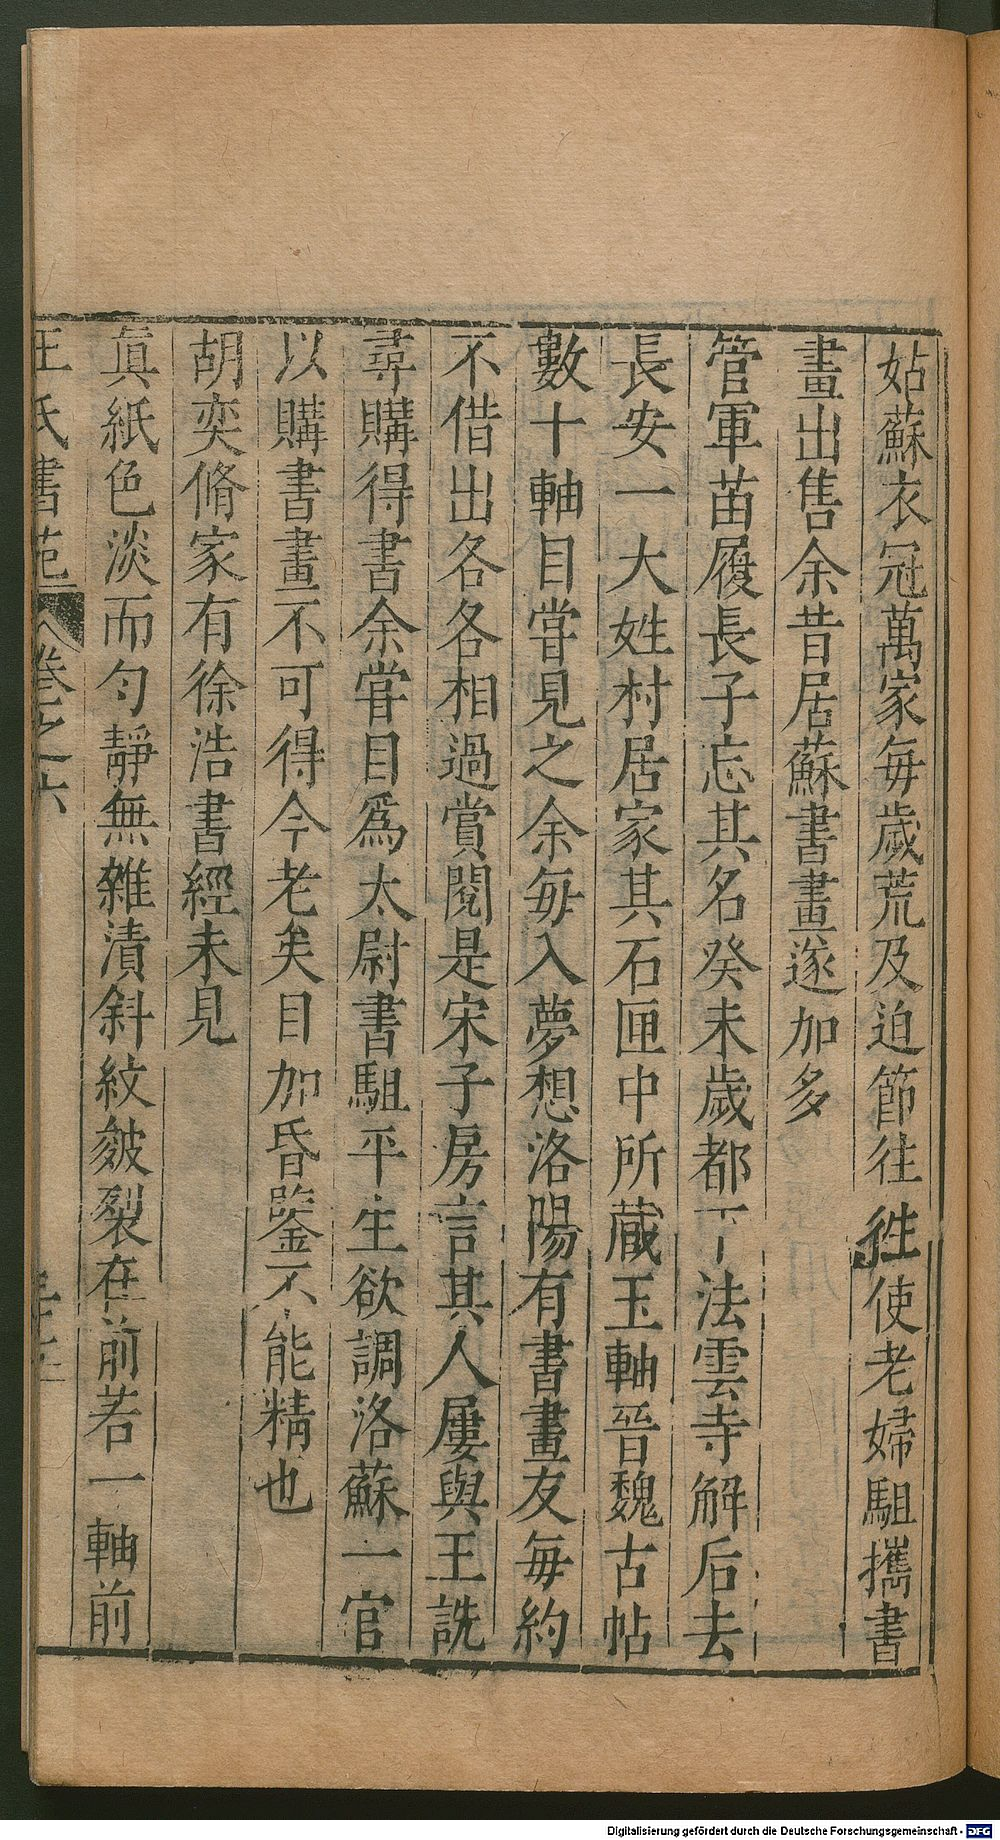 姑蘇衣冠萬家每歲荒及迫節往徃使老婦駔攜書
畫出售余昔居蘇書畫遂加多
管軍苗履長子忘其名癸未歲都下法雲寺解后去
長安一大姓村居家其石匣中所蔵玉軸晉魏古帖
數十軸目嘗見之余每入夢想洛陽有書畫友每約
不借出各各相過賞閱是宋子房言其人屢與王詵
尋購得書余嘗目爲太尉書駔平生欲調洛蘇一官
以購書畫不可得今老矣目加昏鑒不能精也
胡奕脩家有徐浩書經未見
眞紙色淡而勻靜無雜漬斜紋皴裂在前若一軸前
王氏書苑 卷之六
Digitalisierung gefördert durch die Deutsche Forschungsgemeinschaft - DFG